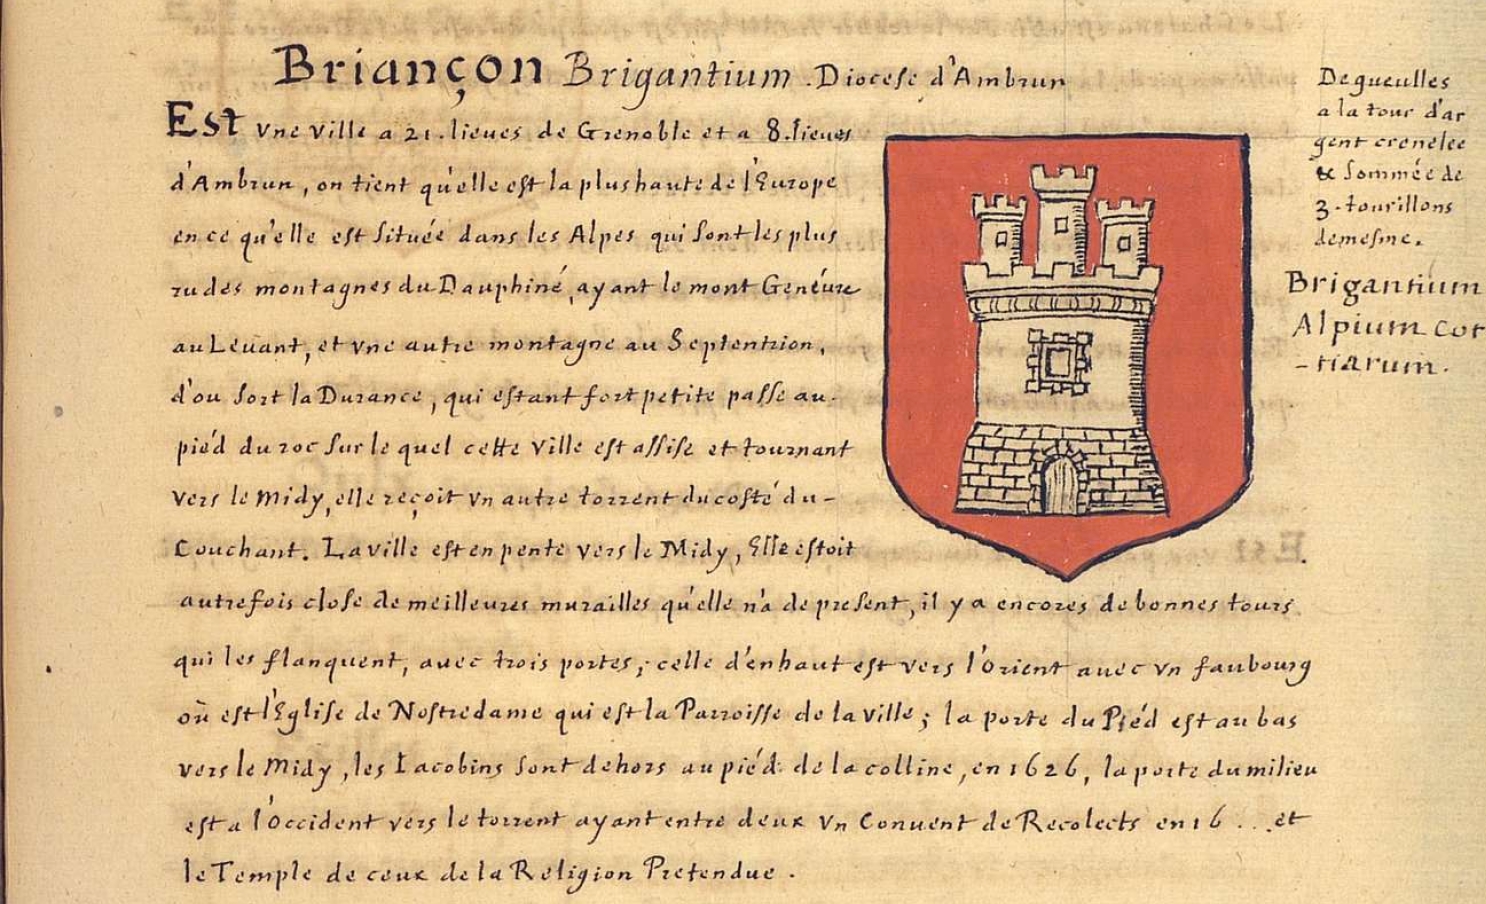 Briançon Brigantium. Diocese d'Ambrun
Est vne ville a 21. lieues de Grenoble et a 8. lieues
d'Ambrun, on tient qu'elle est la plus haute de l'Europe
en ce qu'elle est située dans les Alpes qui sont les plus
rudes montagnes du Dauphiné, ayant le mont Genéure
au Leuant, et vne autre montagne au Septentrion,
d'ou sort la Durance, qui estant fort petite passe au
piéd du roc sur le quel cette ville est assise et tournant
vers le Midy, elle reçoit vn autre torrent du costé du-
Couchant. La ville est en pente vers le Midy, Elle estoit
autrefois close de meilleures murailles qu'elle n'a de present, il y a encores de bonnes tours
qui les flanquent, avec trois portes, celle d'enhaut est vers l'Orient avec vn faubourg
où est l'Eglise de Nostredame qui est la Parroisse de la ville; la porte du Piéd est au bas
vers le Midy, les Iacobins sont dehors au piéd de la colline, en 1626, la porte du milieu
est a l'Occident vers le torrent ayant entre deux vn Conuent de Recolects en 16 ... et
le Temple de ceux de la Religion Pretendue.
De gueulles
a la tour d'ar
gent crenelée
& sommée de
3. tourillons
de mesme.
Brigantium
Alpium Cot
-tiarum.